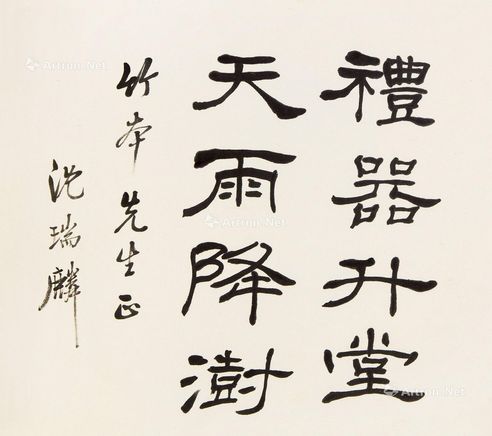 禮器升堂
天雨降澍
竹本先生正
沈瑞麟
Artron.Net
Artron.Net
Artron.Net